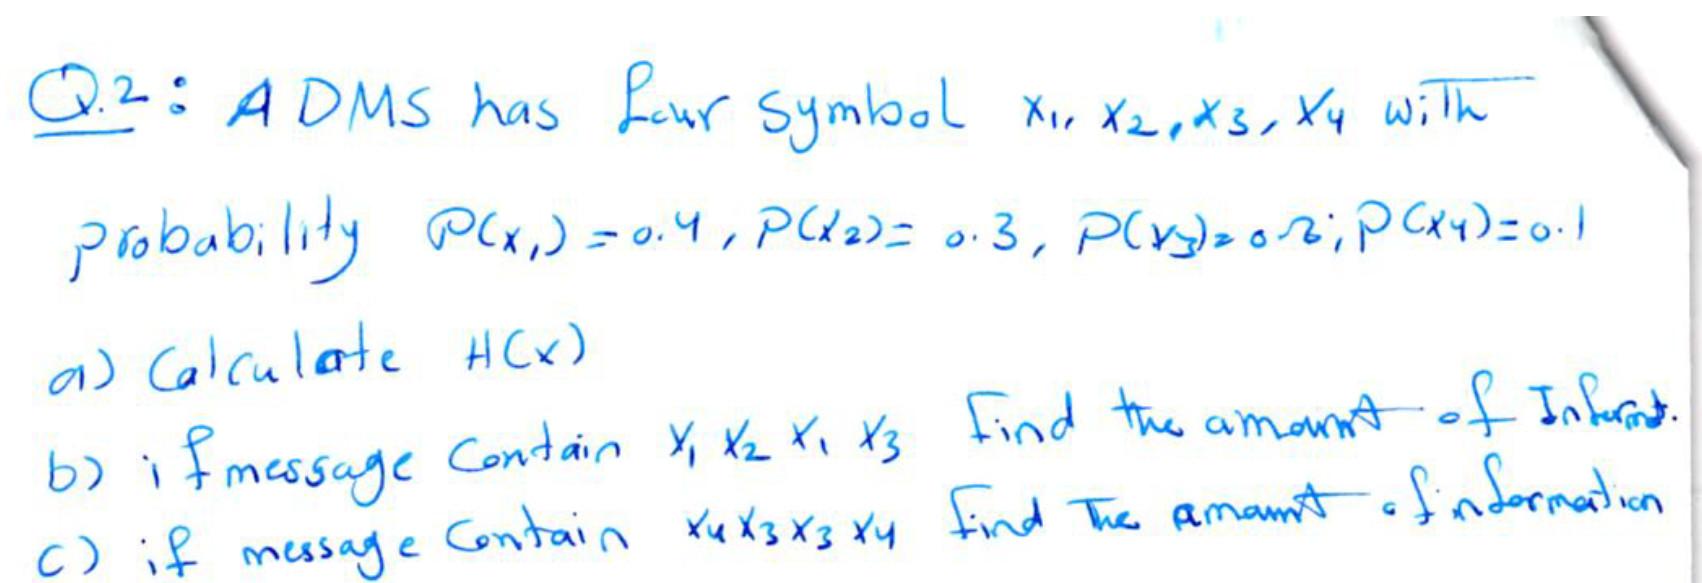 Q.2: A DMS has four symbol x1, x2, x3, x4 with
probability P(x1) = 0.4, P(x2) = 0.3, P(x3) = 0.2, P(x4) = 0.1
a) Calculate H(x)
b) if message Contain x1 x2 x1 x3 find the amount of Informat.
c) if message Contain x4 x3 x3 x4 find The amount of information